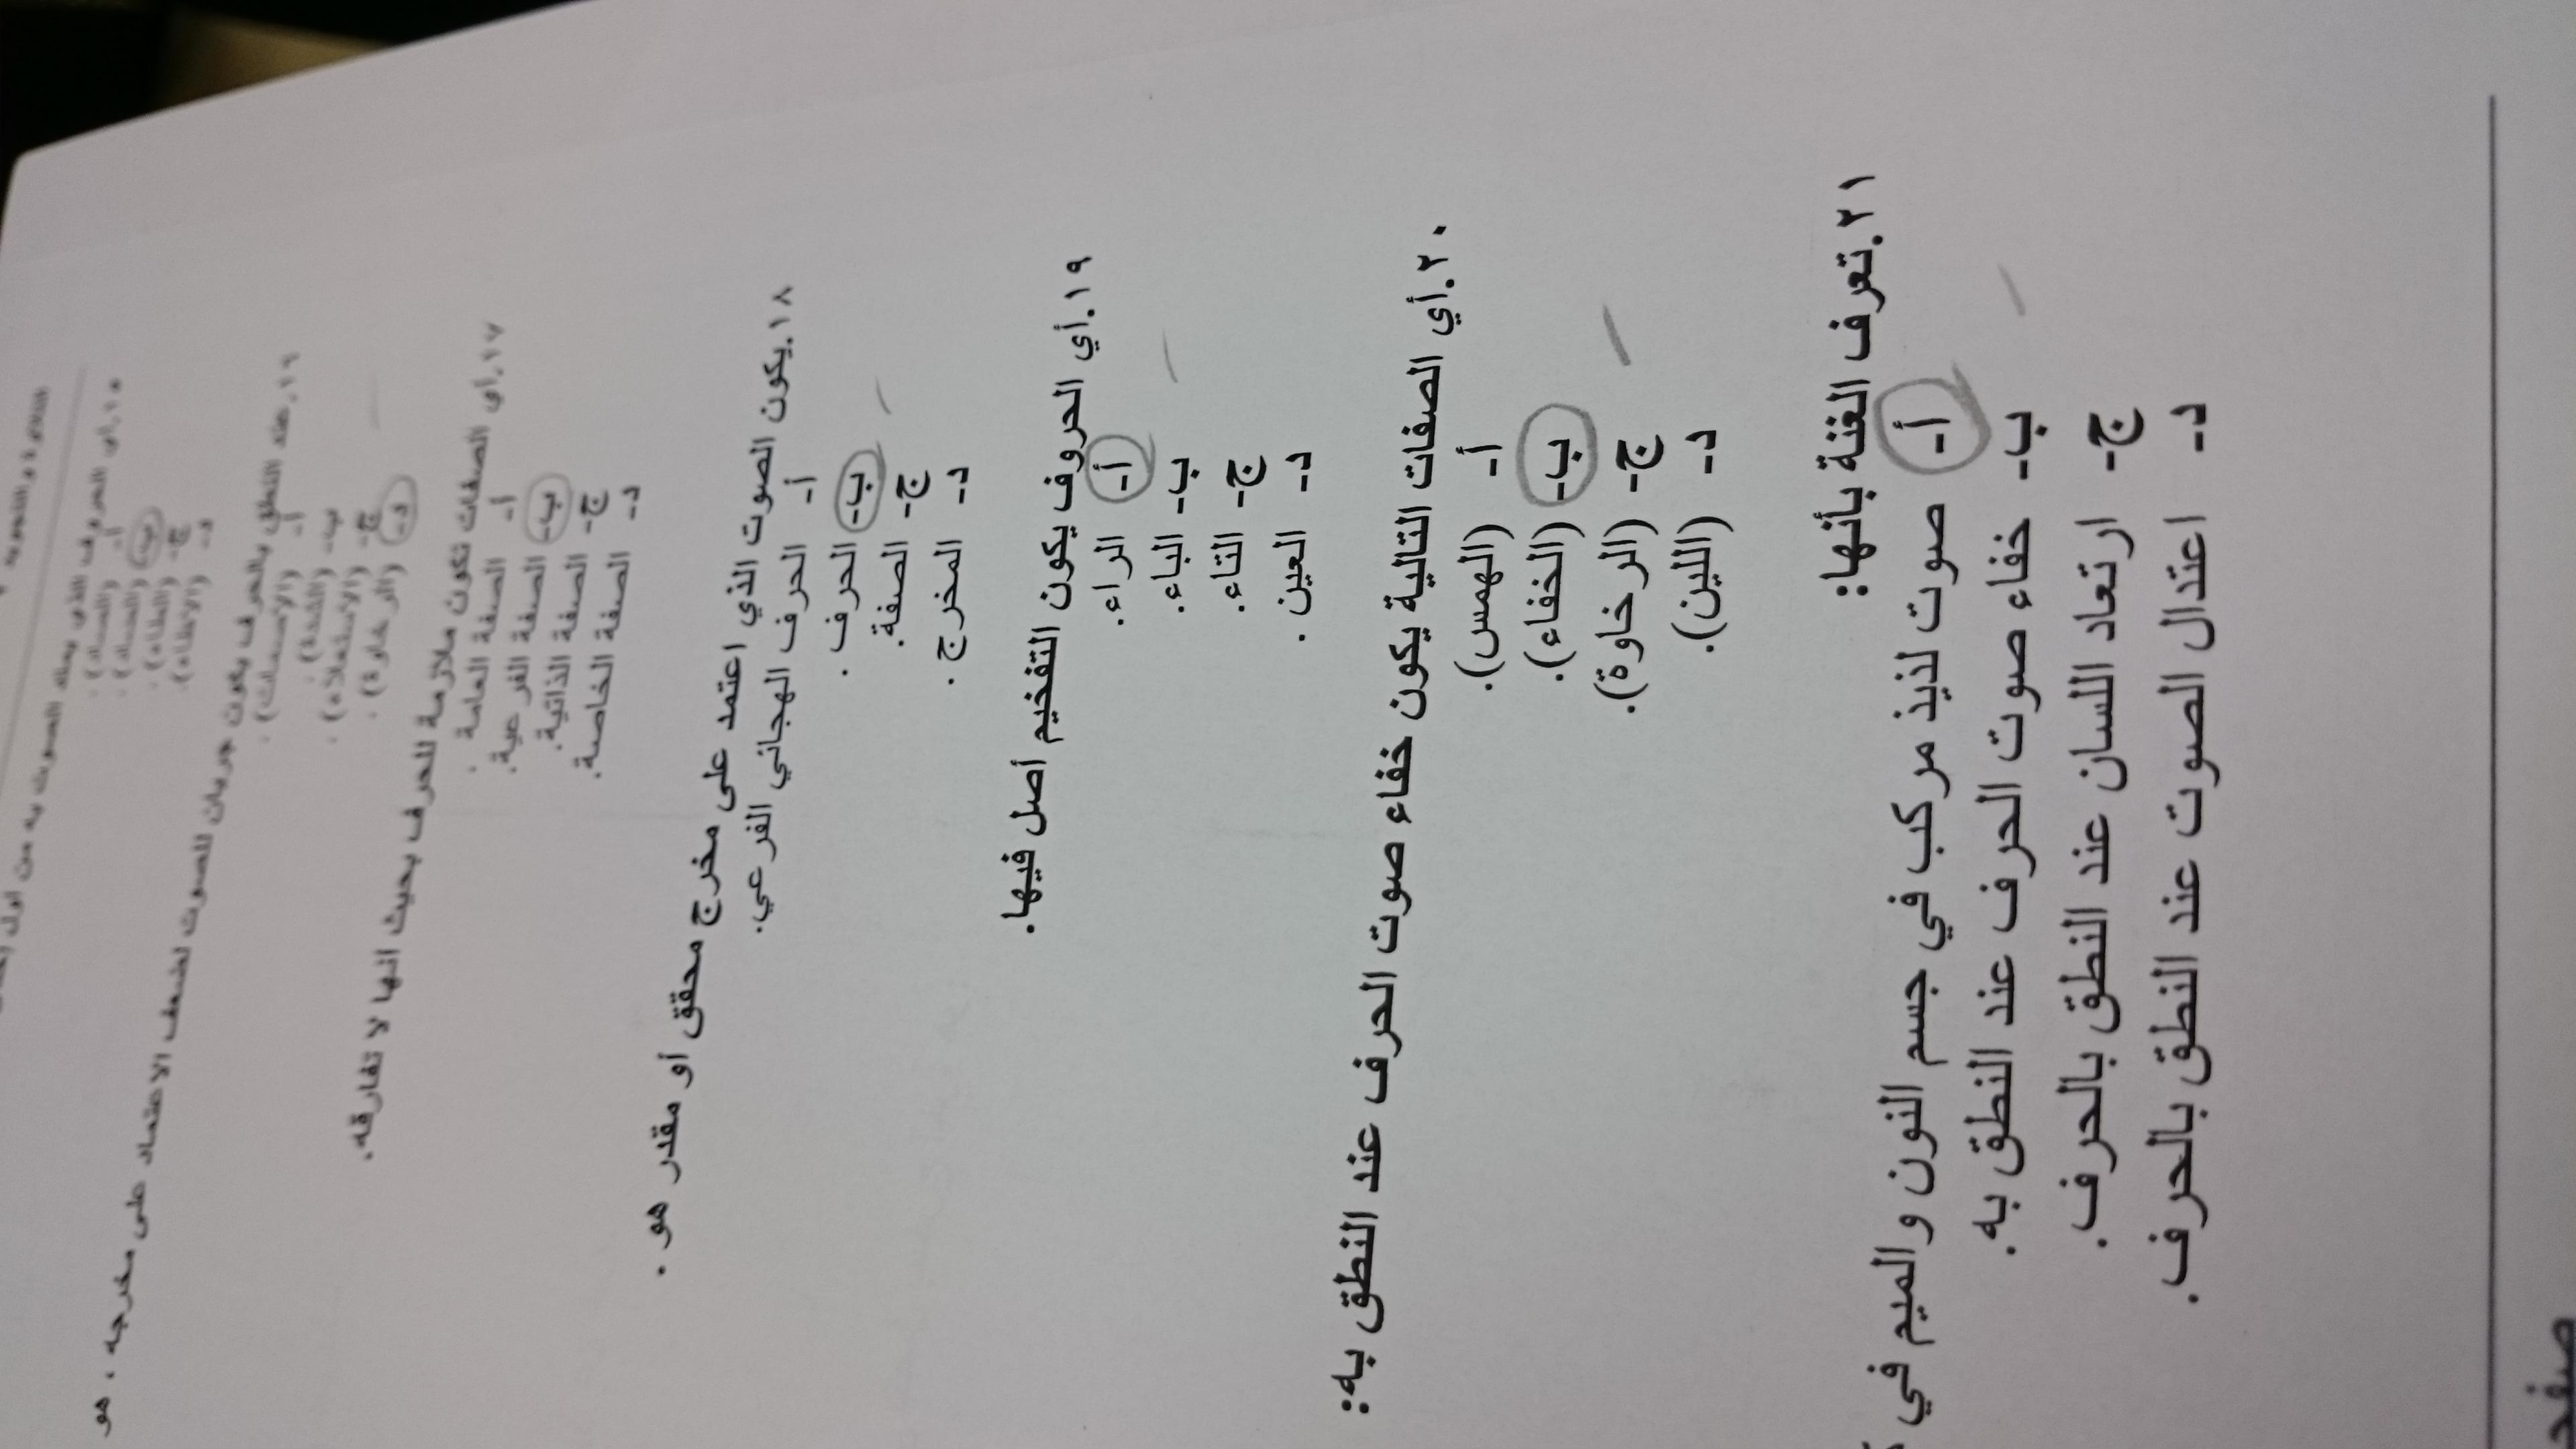 التلاوة والتجويد
١٥. أي الحروف التي يمتد الصوت به من اول
أ-
ب-
ج-
د-
١٦. عند النطق بالحرف يكون جريان للصوت لضعف الاعتماد على مخرجه ، هو
أ- (الاصمات) .
ب- (الشدة) .
ج- (الاستعلاء) .
د- (الرخاوة) .
١٧. أي الصفات تكون ملازمة للحرف بحيث انها لا تفارقه.
أ- الصفة العامة .
ب- الصفة الفرعية.
ج- الصفة الذاتية.
د- الصفة الخاصة.
١٨. يكون الصوت الذي اعتمد على مخرج محقق أو مقدر هو .
أ- الحرف الهجائي الفرعي.
ب- الحرف .
ج- الصفة.
د- المخرج .
١٩. أي الحروف يكون التفخيم أصل فيها.
أ- الراء.
ب- الباء.
ج- التاء.
د- العين .
٢٠. أي الصفات التالية يكون خفاء صوت الحرف عند النطق به:
أ- (الهمس).
ب- (الخفاء).
ج- (الرخاوة).
د- (اللين).
٢١. تعرف الغنة بأنها:
أ- صوت لذيذ مركب في جسم النون و الميم في
ب- خفاء صوت الحرف عند النطق به.
ج- ارتعاد اللسان عند النطق بالحرف.
د- اعتدال الصوت عند النطق بالحرف.